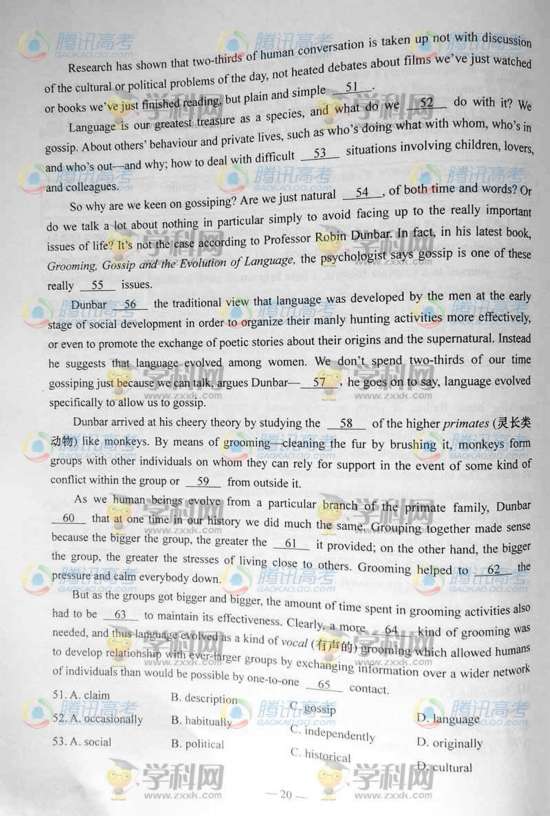 Research has shown that two-thirds of human conversation is taken up not with discussion
of the cultural or political problems of the day, not heated debates about films we've just watched
or books we've just finished reading, but plain and simple 51 .
Language is our greatest treasure as a species, and what do we 52 do with it? We
gossip. About others' behaviour and private lives, such as who's doing what with whom, who's in
and who's out—and why; how to deal with difficult 53 situations involving children, lovers,
and colleagues.
So why are we keen on gossiping? Are we just natural 54 , of both time and words? Or
do we talk a lot about nothing in particular simply to avoid facing up to the really important
issues of life? It's not the case according to Professor Robin Dunbar. In fact, in his latest book,
Grooming, Gossip and the Evolution of Language, the psychologist says gossip is one of these
really 55 issues.
Dunbar 56 the traditional view that language was developed by the men at the early
stage of social development in order to organize their manly hunting activities more effectively,
or even to promote the exchange of poetic stories about their origins and the supernatural. Instead
he suggests that language evolved among women. We don't spend two-thirds of our time
gossiping just because we can talk, argues Dunbar— 57 , he goes on to say, language evolved
specifically to allow us to gossip.
Dunbar arrived at his cheery theory by studying the 58 of the higher primates (灵长类
动物) like monkeys. By means of grooming—cleaning the fur by brushing it, monkeys form
groups with other individuals on whom they can rely for support in the event of some kind of
conflict within the group or 59 from outside it.
As we human beings evolve from a particular branch of the primate family, Dunbar
60 that at one time in our history we did much the same. Grouping together made sense
because the bigger the group, the greater the 61 it provided; on the other hand, the bigger
the group, the greater the stresses of living close to others. Grooming helped to 62 the
pressure and calm everybody down.
But as the groups got bigger and bigger, the amount of time spent in grooming activities also
had to be 63 to maintain its effectiveness. Clearly, a more 64 kind of grooming was
needed, and thus language evolved as a kind of vocal (有声的) grooming which allowed humans
to develop relationship with ever-larger groups by exchanging information over a wider network
of individuals than would be possible by one-to-one 65 contact.
51. A. claim B. description C. gossip D. language
52. A. occasionally B. habitually C. independently D. originally
53. A. social B. political C. historical D. cultural
— 20 —
腾讯高考
GAOKAO.QQ.COM
学科网
www.zxxk.com